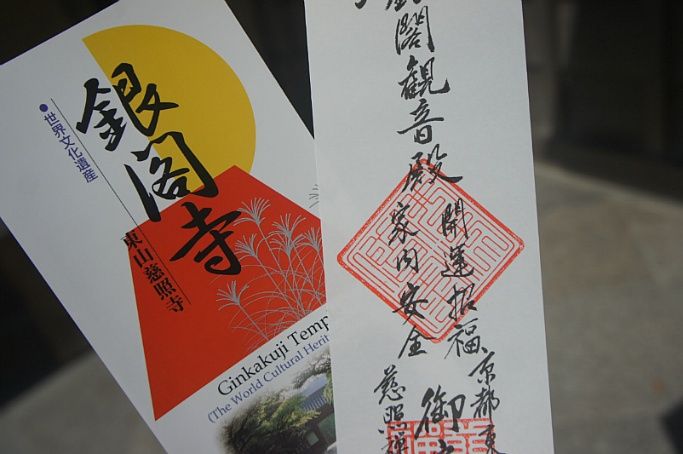 ●世界文化遺産
銀閣寺
東山慈照寺
Ginkakuji Temp
(The World Cultural Herit
銀閣観音殿
開運招福
家内安全
京都東
慈照禅
御